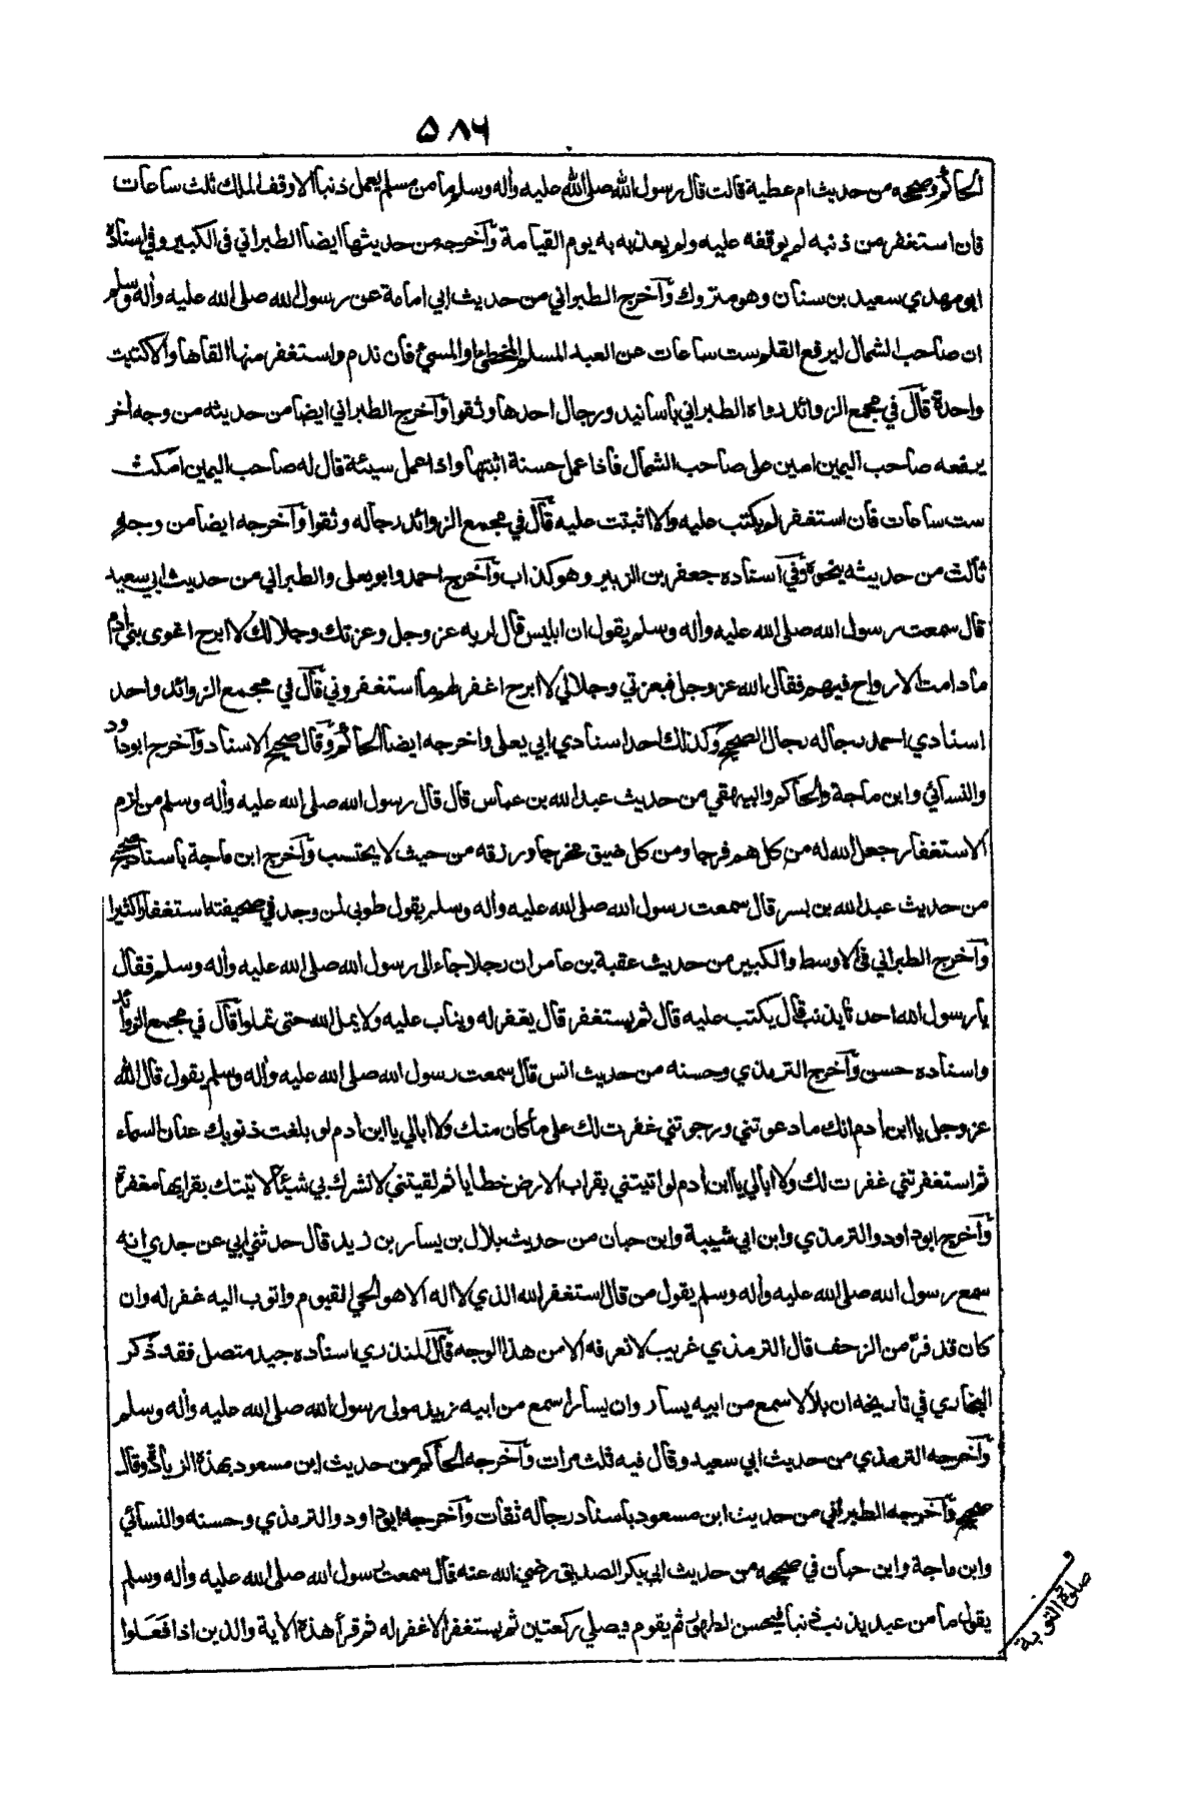 ٥٨٦
الحاكم وصححه من حديث ام عطية قالت قال رسول الله صلى الله عليه وأله وسلم ما من مسلم يعمل ذنبا الا وقف الملك ثلث ساعات
فان استغفر من ذنبه لم يوقفه عليه ولم يعذبه به يوم القيامة وآخرجه من حديثها ايضا الطبراني في الكبير وفي اسناده
ابو مهدي سعيد بن سنان وهو متروك وآخرج الطبراني من حديث ابي امامة عن رسول الله صلى الله عليه وأله وسلم
ان صاحب الشمال ليرفع القلم ست ساعات عن العبد المسلم المخطئ او المسيئ فان ندم واستغفر منها القاها والا كتبت
واحدة قآل في مجمع الزوائد رواه الطبراني باسانيد ورجال احدها وثقوا وآخرج الطبراني ايضا من حديثه من وجه أخر
يرفعه صاحب اليمين امين على صاحب الشمال فاذا عمل حسنة اثبتها واذا عمل سيئة قال له صاحب اليمين امكث
ست ساعات فان استغفر لم يكتب عليه والا اثبتت عليه قآل في مجمع الزوائد رجاله وثقوا وآخرجه ايضا من وجه
ثالث من حديثه بنحوه وفي اسناده جعفر بن الزبير وهو كذاب وآخرج احمد وابو يعلى والطبراني من حديث ابي سعيد
قال سمعت رسول الله صلى الله عليه وأله وسلم يقول ان ابليس قال لربه عز وجل وعزتك وجلالك لا ابرح اغوى بني أدم
ما دامت الارواح فيهم فقال الله عز وجل فبعزتي وجلالي لا ابرح اغفر لهم ما استغفروني قآل في مجمع الزوائد واحد
اسنادي احمد رجاله رجال الصحيح وكذلك احد اسنادي ابي يعلى واخرجه ايضا الحاكم وقال صحيح الاسناد وآخرج ابو داود
والنسائي وابن ماجة والحاكم والبيهقي من حديث عبد الله بن عباس قال قال رسول الله صلى الله عليه وأله وسلم من لزم
الاستغفار جعل الله له من كل هم فرجا ومن كل ضيق مخرجا ورزقه من حيث لا يحتسب وآخرج ابن ماجة باسناد صحيح
من حديث عبد الله بن بسر قال سمعت رسول الله صلى الله عليه وأله وسلم يقول طوبى لمن وجد في صحيفته استغفارا كثيرا
وآخرج الطبراني في الاوسط والكبير من حديث عقبة بن عامر ان رجلا جاء الى رسول الله صلى الله عليه وأله وسلم فقال
يا رسول الله احدنا يذنب قال يكتب عليه قال ثم يستغفر قال يغفر له ويتاب عليه ولا يمل الله حتى تملوا قآل في مجمع الزوائد
واسناده حسن وآخرج الترمذي وحسنه من حديث انس قال سمعت رسول الله صلى الله عليه وأله وسلم يقول قال الله
عز وجل يا ابن أدم انك ما دعوتني ورجوتني غفرت لك على ما كان منك ولا ابالي يا ابن أدم لو بلغت ذنوبك عنان السماء
ثم استغفرتني غفرت لك ولا ابالي يا ابن أدم لو اتيتني بقراب الارض خطايا ثم لقيتني لا تشرك بي شيئا لاتيتك بقرابها مغفرة
وآخرج ابو داود والترمذي وابن ابي شيبة وابن حبان من حديث بلال بن يسار بن زيد قال حدثني ابي عن جدي انه
سمع رسول الله صلى الله عليه وأله وسلم يقول من قال استغفر الله الذي لا اله الا هو الحي القيوم واتوب اليه غفر له وان
كان قد فر من الزحف قال الترمذي غريب لا نعرفه الا من هذا الوجه قآل المنذري اسناده جيد متصل فقد ذكر
البخاري في تاريخه ان بلالا سمع من ابيه يسار وان يسارا سمع من ابيه زيد مولى رسول الله صلى الله عليه وأله وسلم
وآخرجه الترمذي من حديث ابي سعيد وقال فيه ثلث مرات وآخرجه الحاكم من حديث ابن مسعود بهذه الزيادة وقال
صحيح وآخرجه الطبراني من حديث ابن مسعود باسناد رجاله ثقات وآخرجه ابو داود والترمذي وحسنه والنسائي
وابن ماجة وابن حبان في صحيحه من حديث ابي بكر الصديق رضي الله عنه قال سمعت رسول الله صلى الله عليه وأله وسلم
يقول ما من عبد يذنب ذنبا فيحسن الطهور ثم يقوم فيصلي ركعتين ثم يستغفر الا غفر له ثم قرأ هذه الأية والذين اذا فعلوا
صلوة التوبة